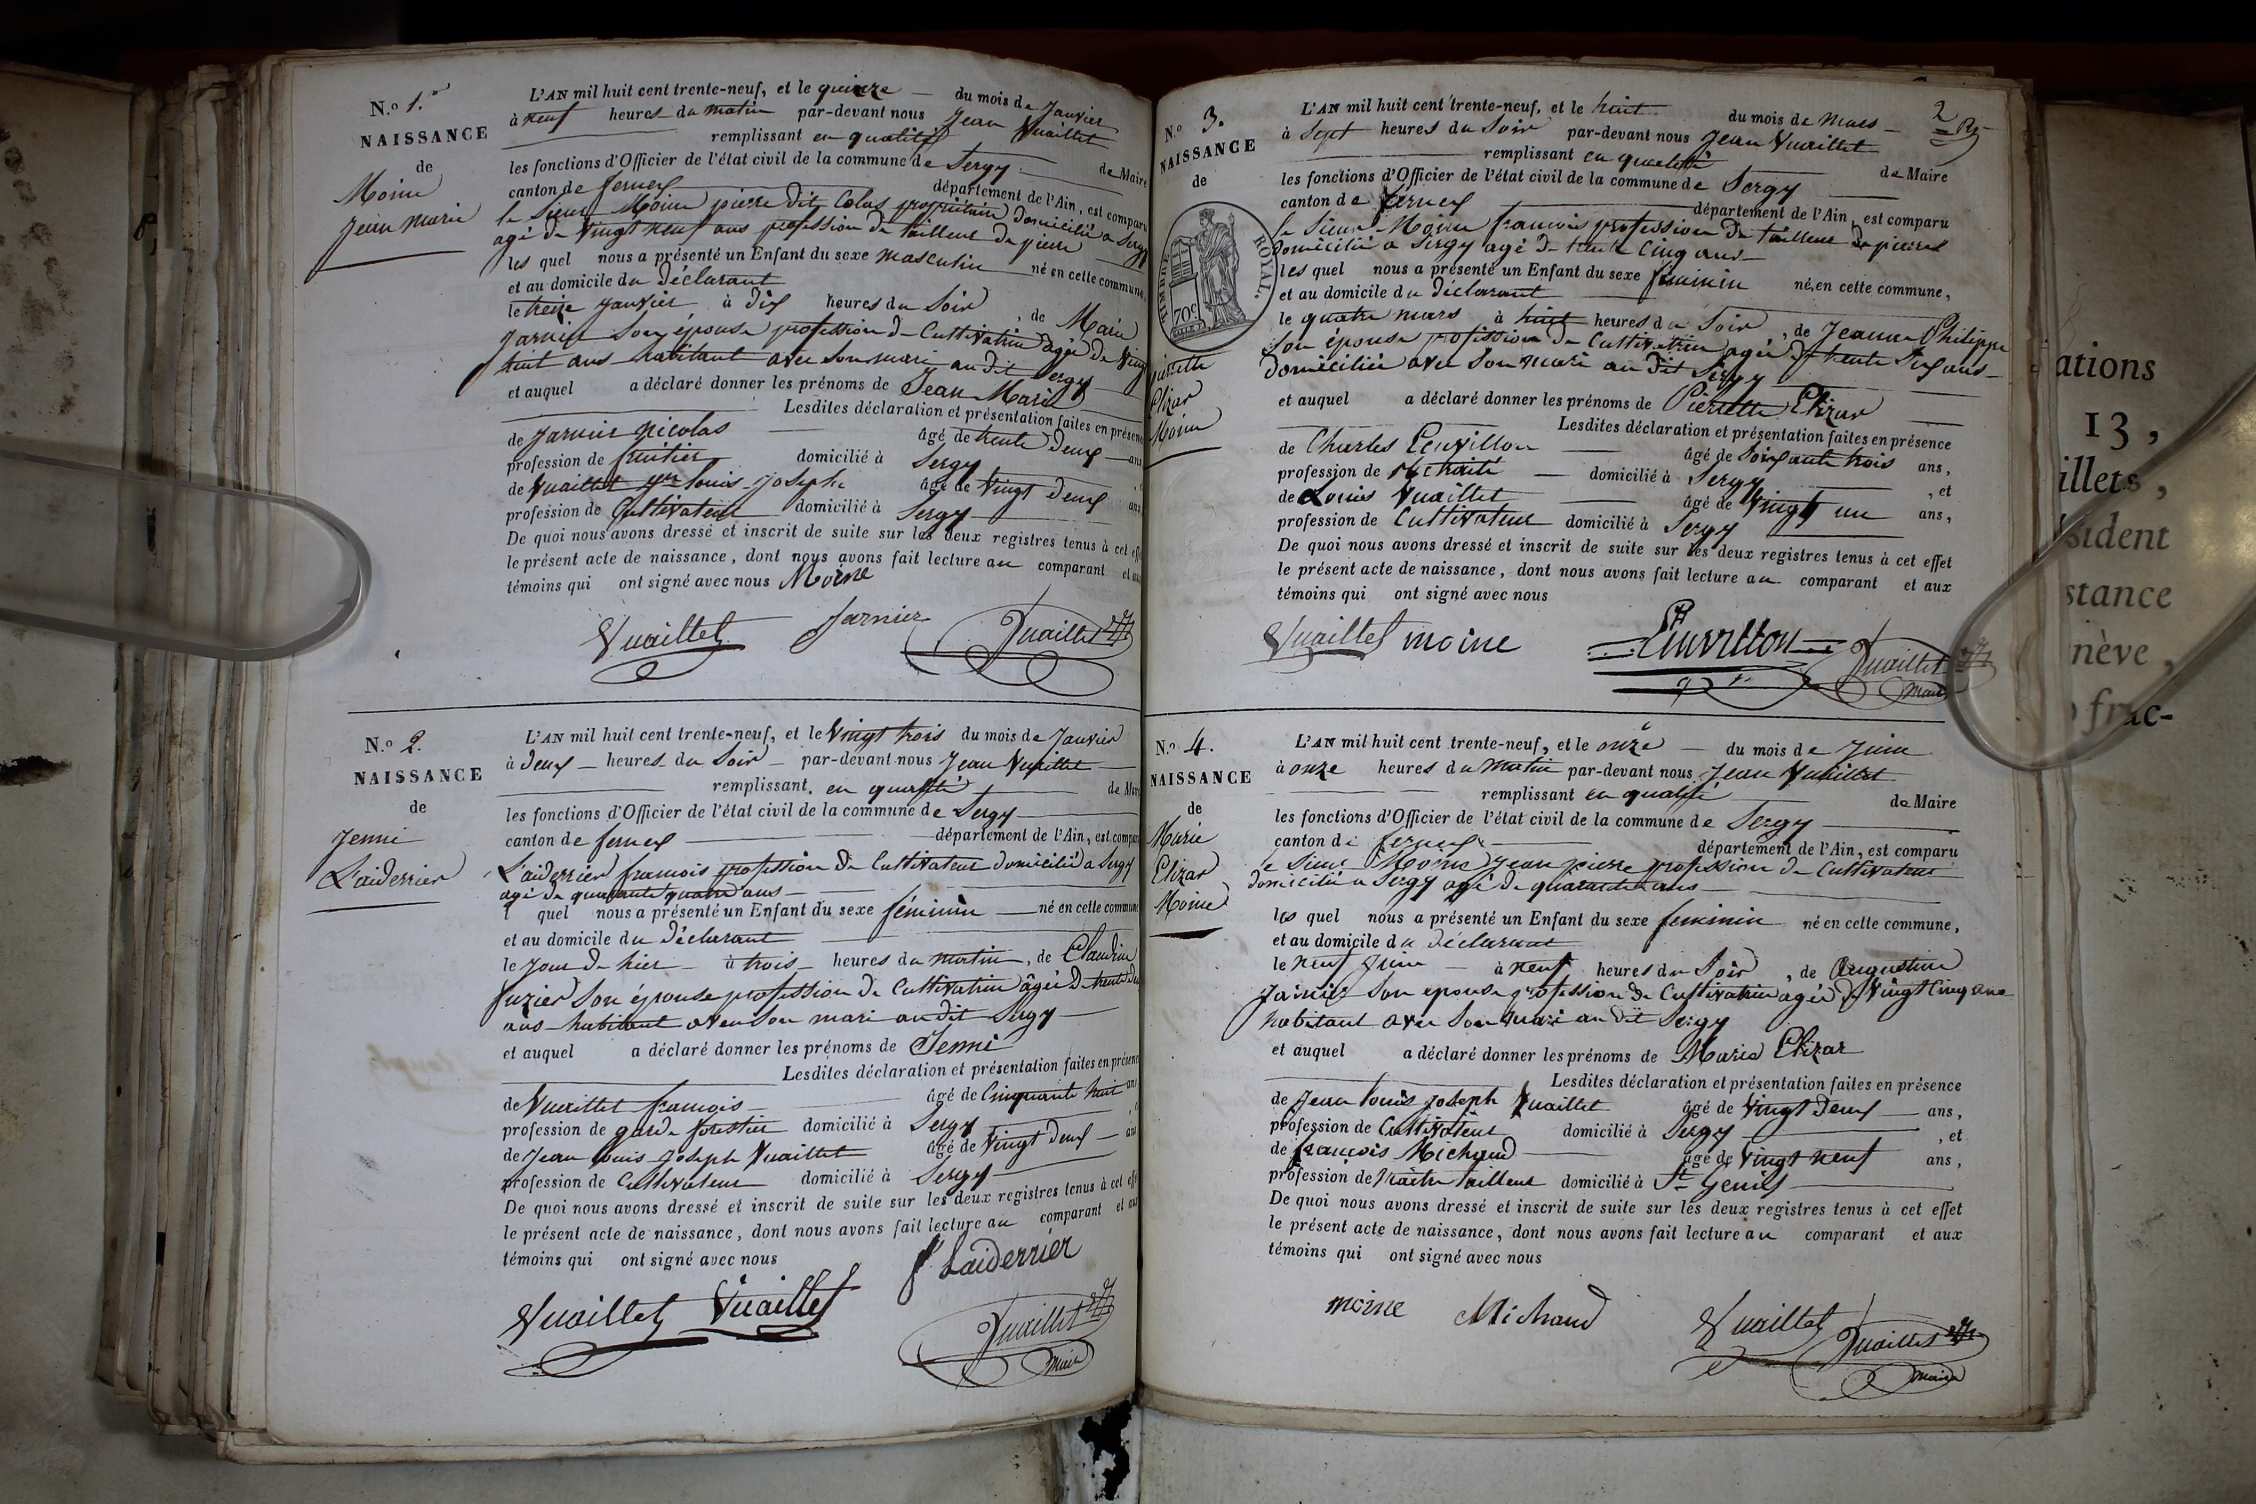 N.o 1.er
NAISSANCE
de
Moine
Jean Marie
L'AN mil huit cent trente-neuf, et le quinze du mois de Janvier
à neuf heures du matin par-devant nous Jean Vuaillet
remplissant en qualité de Maire
les fonctions d'Officier de l'état civil de la commune de Sergy
canton de ferney département de l'Ain, est comparu
le Sieur Moine pierre dit Colas propriétaire domicilié a Sergy
agé de Vingt neuf ans profession de tailleur de pierre
les quel nous a présenté un Enfant du sexe masculin né en cette commune,
et au domicile du déclarant
le treize Janvier à dix heures du Soir, de Marie
Jarnier Son épouse profession de Cultivatrice agée de Vingt
huit ans habitant avec Son mari au dit Sergy
et auquel a déclaré donner les prénoms de Jean Marie
Lesdites déclaration et présentation faites en présence
de Jarnier nicolas âgé de trente Deux ans
profession de fruitier domicilié à Sergy
de Vuaillet jn louis Joseph âgé de Vingt Deux ans
profession de Cultivateur domicilié à Sergy
De quoi nous avons dressé et inscrit de suite sur les deux registres tenus à cet effet
le présent acte de naissance, dont nous avons fait lecture au comparant et aux
témoins qui ont signé avec nous Moine
Vuaillet Jarnier Vuaillet
N.o 2.
NAISSANCE
de
Jenni
Laiderrier
L'AN mil huit cent trente-neuf, et le Vingt trois du mois de Janvier
à Deux heures du Soir par-devant nous Jean Vuaillet
remplissant en qualité de Maire
les fonctions d'Officier de l'état civil de la commune de Sergy
canton de ferney département de l'Ain, est comparu
Laiderrier francois profession de Cultivateur domicilié a Sergy
agé de quarante quatre ans
quel nous a présenté un Enfant du sexe féminin né en cette commune
et au domicile du déclarant
le Jour de hier à trois heures du matin, de Claudine
fuzier Son épouse profession de Cultivatrice âgée de trente
ans habitant avec Son mari au dit Sergy
et auquel a déclaré donner les prénoms de Jenni
Lesdites déclaration et présentation faites en présence
de Vuaillet francois âgé de Cinquante huit ans
profession de garde forestier domicilié à Sergy
de Jean louis Joseph Vuaillet âgé de Vingt Deux ans
profession de Cultivateur domicilié à Sergy
De quoi nous avons dressé et inscrit de suite sur les deux registres tenus à cet effet
le présent acte de naissance, dont nous avons fait lecture au comparant et aux
témoins qui ont signé avec nous
f Laiderrier
Vuaillet Vuaillet Vuaillet
Maire
2
N.o 3.
NAISSANCE
de
TIMBRE ROYAL.
70c
pierrette
Elizar
Moine
L'AN mil huit cent trente-neuf, et le huit du mois de Mars
à Sept heures du Soir par-devant nous Jean Vuaillet
remplissant en qualité de Maire
les fonctions d'Officier de l'état civil de la commune de Sergy
canton de ferney département de l'Ain, est comparu
le Sieur Moine francois profession de tailleur de pierre
domicilié a Sergy agé de trente Cinq ans
les quel nous a présenté un Enfant du sexe féminin né en cette commune,
et au domicile du déclarant
le quatre mars à huit heures du Soir, de Jeanne Philippe
Son épouse profession de Cultivatrice agée de trente Six ans
domiciliée avec Son mari au dit Sergy
et auquel a déclaré donner les prénoms de Pierrette Elizar
Lesdites déclaration et présentation faites en présence
de Charles Peuvillon âgé de Soixante trois ans,
profession de retraité domicilié à Sergy, et
de Louis Vuaillet âgé de Vingt un ans,
profession de Cultivateur domicilié à Sergy
De quoi nous avons dressé et inscrit de suite sur les deux registres tenus à cet effet
le présent acte de naissance, dont nous avons fait lecture au comparant et aux
témoins qui ont signé avec nous
Vuaillet moine Peuvillon Vuaillet
Maire
N.o 4.
NAISSANCE
de
Marie
Elizar
Moine
L'AN mil huit cent trente-neuf, et le onze du mois de Juin
à onze heures du Matin par-devant nous Jean Vuaillet
remplissant en qualité de Maire
les fonctions d'Officier de l'état civil de la commune de Sergy
canton de ferney département de l'Ain, est comparu
le Sieur Moine Jean pierre profession de Cultivateur
domicilié a Sergy agé de quarante ans
les quel nous a présenté un Enfant du sexe feminin né en cette commune,
et au domicile du déclarant
le neuf Juin à neuf heures du Soir, de Augustine
Jarnier Son epouse profession de Cultivatrice agée de Vingt Cinq ans
habitant avec Son mari au dit Sergy
et auquel a déclaré donner les prénoms de Marie Elizar
Lesdites déclaration et présentation faites en présence
de Jean louis Joseph Vuaillet âgé de Vingt Deux ans,
profession de Cultivateur domicilié à Sergy, et
de francois Michaud âgé de Vingt neuf ans,
profession de Maître tailleur domicilié à St Genis
De quoi nous avons dressé et inscrit de suite sur les deux registres tenus à cet effet
le présent acte de naissance, dont nous avons fait lecture au comparant et aux
témoins qui ont signé avec nous
moine Michaud Vuaillet Vuaillet
Maire
ations
13,
illets,
sident
stance
nève,
frac-